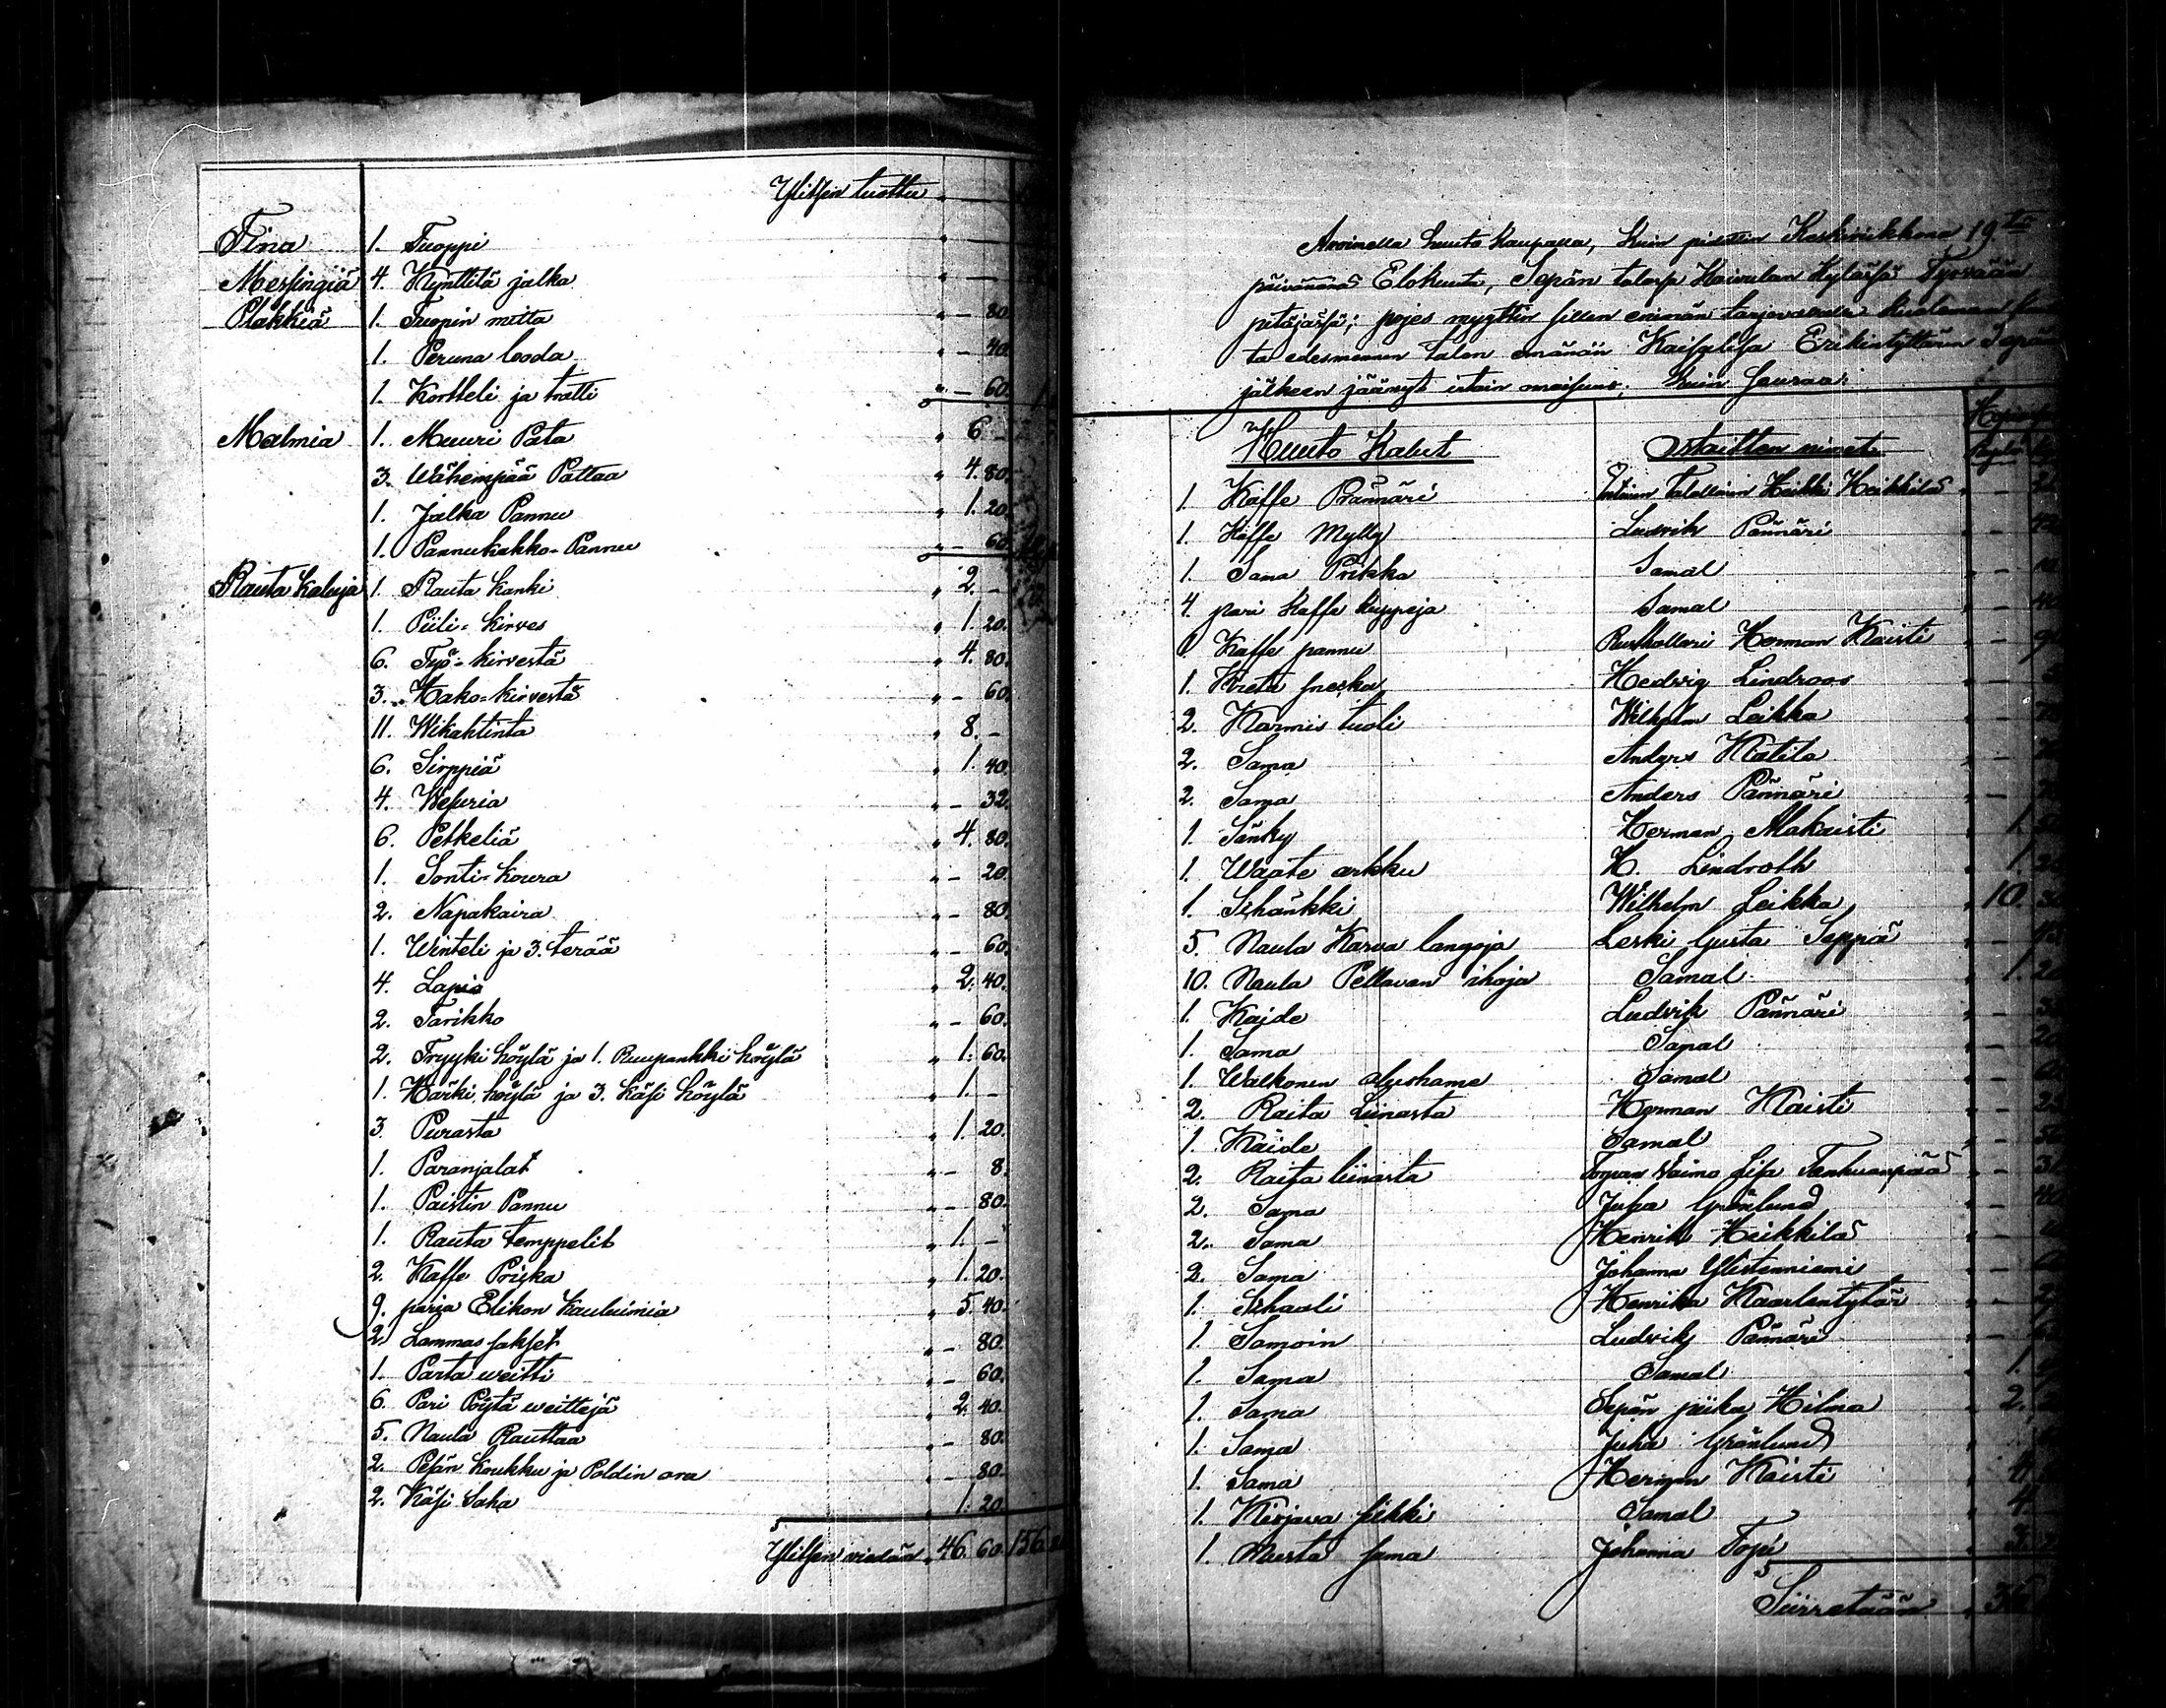 Ylitsen tuottu " —
Tina 1. Tuoppi " —
Messingiä 4. Kynttilä jalka " —
Pläkkiä 1. Tuopin mitta " — 80.
1. Peruna looda " — 40.
1. Kortteli ja tratti " — 60.
Malmia 1. Muuri Pata " 6 -
3. Wähempää Pattaa " 4. 80.
1. Jalka Pannu " 1. 20.
1. Pannukakko-Pannu " — 60.
Rauta kaluja 1. Rauta kanki " 2. -
1. Piili-kirves " 1. 20.
6. Työ-kirvestä " 4. 80.
3. Hako-kirvestä " — 60.
11. Wikahtinta " 8. -
6. Sirppiä " 1. 40.
4. Wesuria " — 32.
6. Petkeliä " 4. 80.
1. Sonti-koura " — 20.
2. Napakaira " — 80.
1. Winteli ja 3. terää " — 60.
4. Lapio " 2. 40.
2. Tarikko " — 60.
2. Tryyki höylä ja 1. Ruupankki höylä " 1. 60.
1. Härki höylä ja 3. käsi höylä " 1. -
3. Purasta " 1. 20.
1. Paranjalat " — 8.
1. Paistin Pannu " — 80.
1. Rauta temppelit " 1. -
2. Kaffe Pricka " 1. 20.
9. paria Elikon Kauluimia " 5. 40.
2. Lammas sakset " — 80.
1. Parta weitti " — 60.
6. Pari Pöytä weittejä " 2. 40.
5. Naula Rauttaa " — 80.
2. Pesän koukku ja Poldin ora " — 80.
2. Käsi Saha " 1. 20.
Ylitsen viedään " 46. 60. 156.
Avoimella huuto kaupalla, kuin pidettin Keskiviikkona 19.ta
päivänänä Elokuuta, Sepän talossa Koivulan Kylässä Tyrvään
pitäjässä; pojes myyttin sillen enimän tarjovalle kuoleman
ta edesmennen talon emänän Kaisalisa Erikintyttären Sepän
jälkeen jäänyt irtain omaisuus; kuin seuraa:
Huuto Kalut Ostaitten nimet
1. Kaffe Pännäri Entinen Talollinen Heikki Heikkilä " —
1. Kaffe Mylly Ludvik Pännäri
1. Sama Prikka Samal " —
4 pari Kaffe kuppeja Samal
1 Kaffe pannu Rusthollari Herman Kaisti " —
1. Kreta snecka Hedvig Lindroos " —
2. Karmis tuoli Wilhelm Leikka " —
2. Sama Anders Matila " —
2. Sama Anders Pännäri " —
1. Sänky Herman Alakaisti " 1.
1. Waate arkku H. Lindroth " 1.
1. Skänkki Wilhelm Leikka " 10.
5. Naula Karva langoja Leski Gusta Seppä " —
10. Naula Pellavan ihoja Samal " 1.
1. Kaide Ludvik Pännäri " —
1. Sama Samal " —
1. Walkonen alushame Samal " —
2. Raita Liinasta Herman Kaisti " —
1. Kaide Samal " —
2. Raita liinasta Torpan Vaimo Lisa Tanhuanpää " —
2. Sama Juha Grönlund " —
2. Sama Henrik Heikkilä " —
2. Sama Johanna Ylistenniemi " —
1. Skaali Henrika Kaarlentytär " —
1. Samoin Ludvik Pännäri " —
1. Sama Samal " 1.
1. Sama Sepän piika Hilma " 2.
1. Sama Juha Grönlund "
1. Sama Herman Kaisti " 4.
1. Kirjava silkki Samal " 4.
1. Musta sama Johanna Topi " 3.
Siirretään " 36.